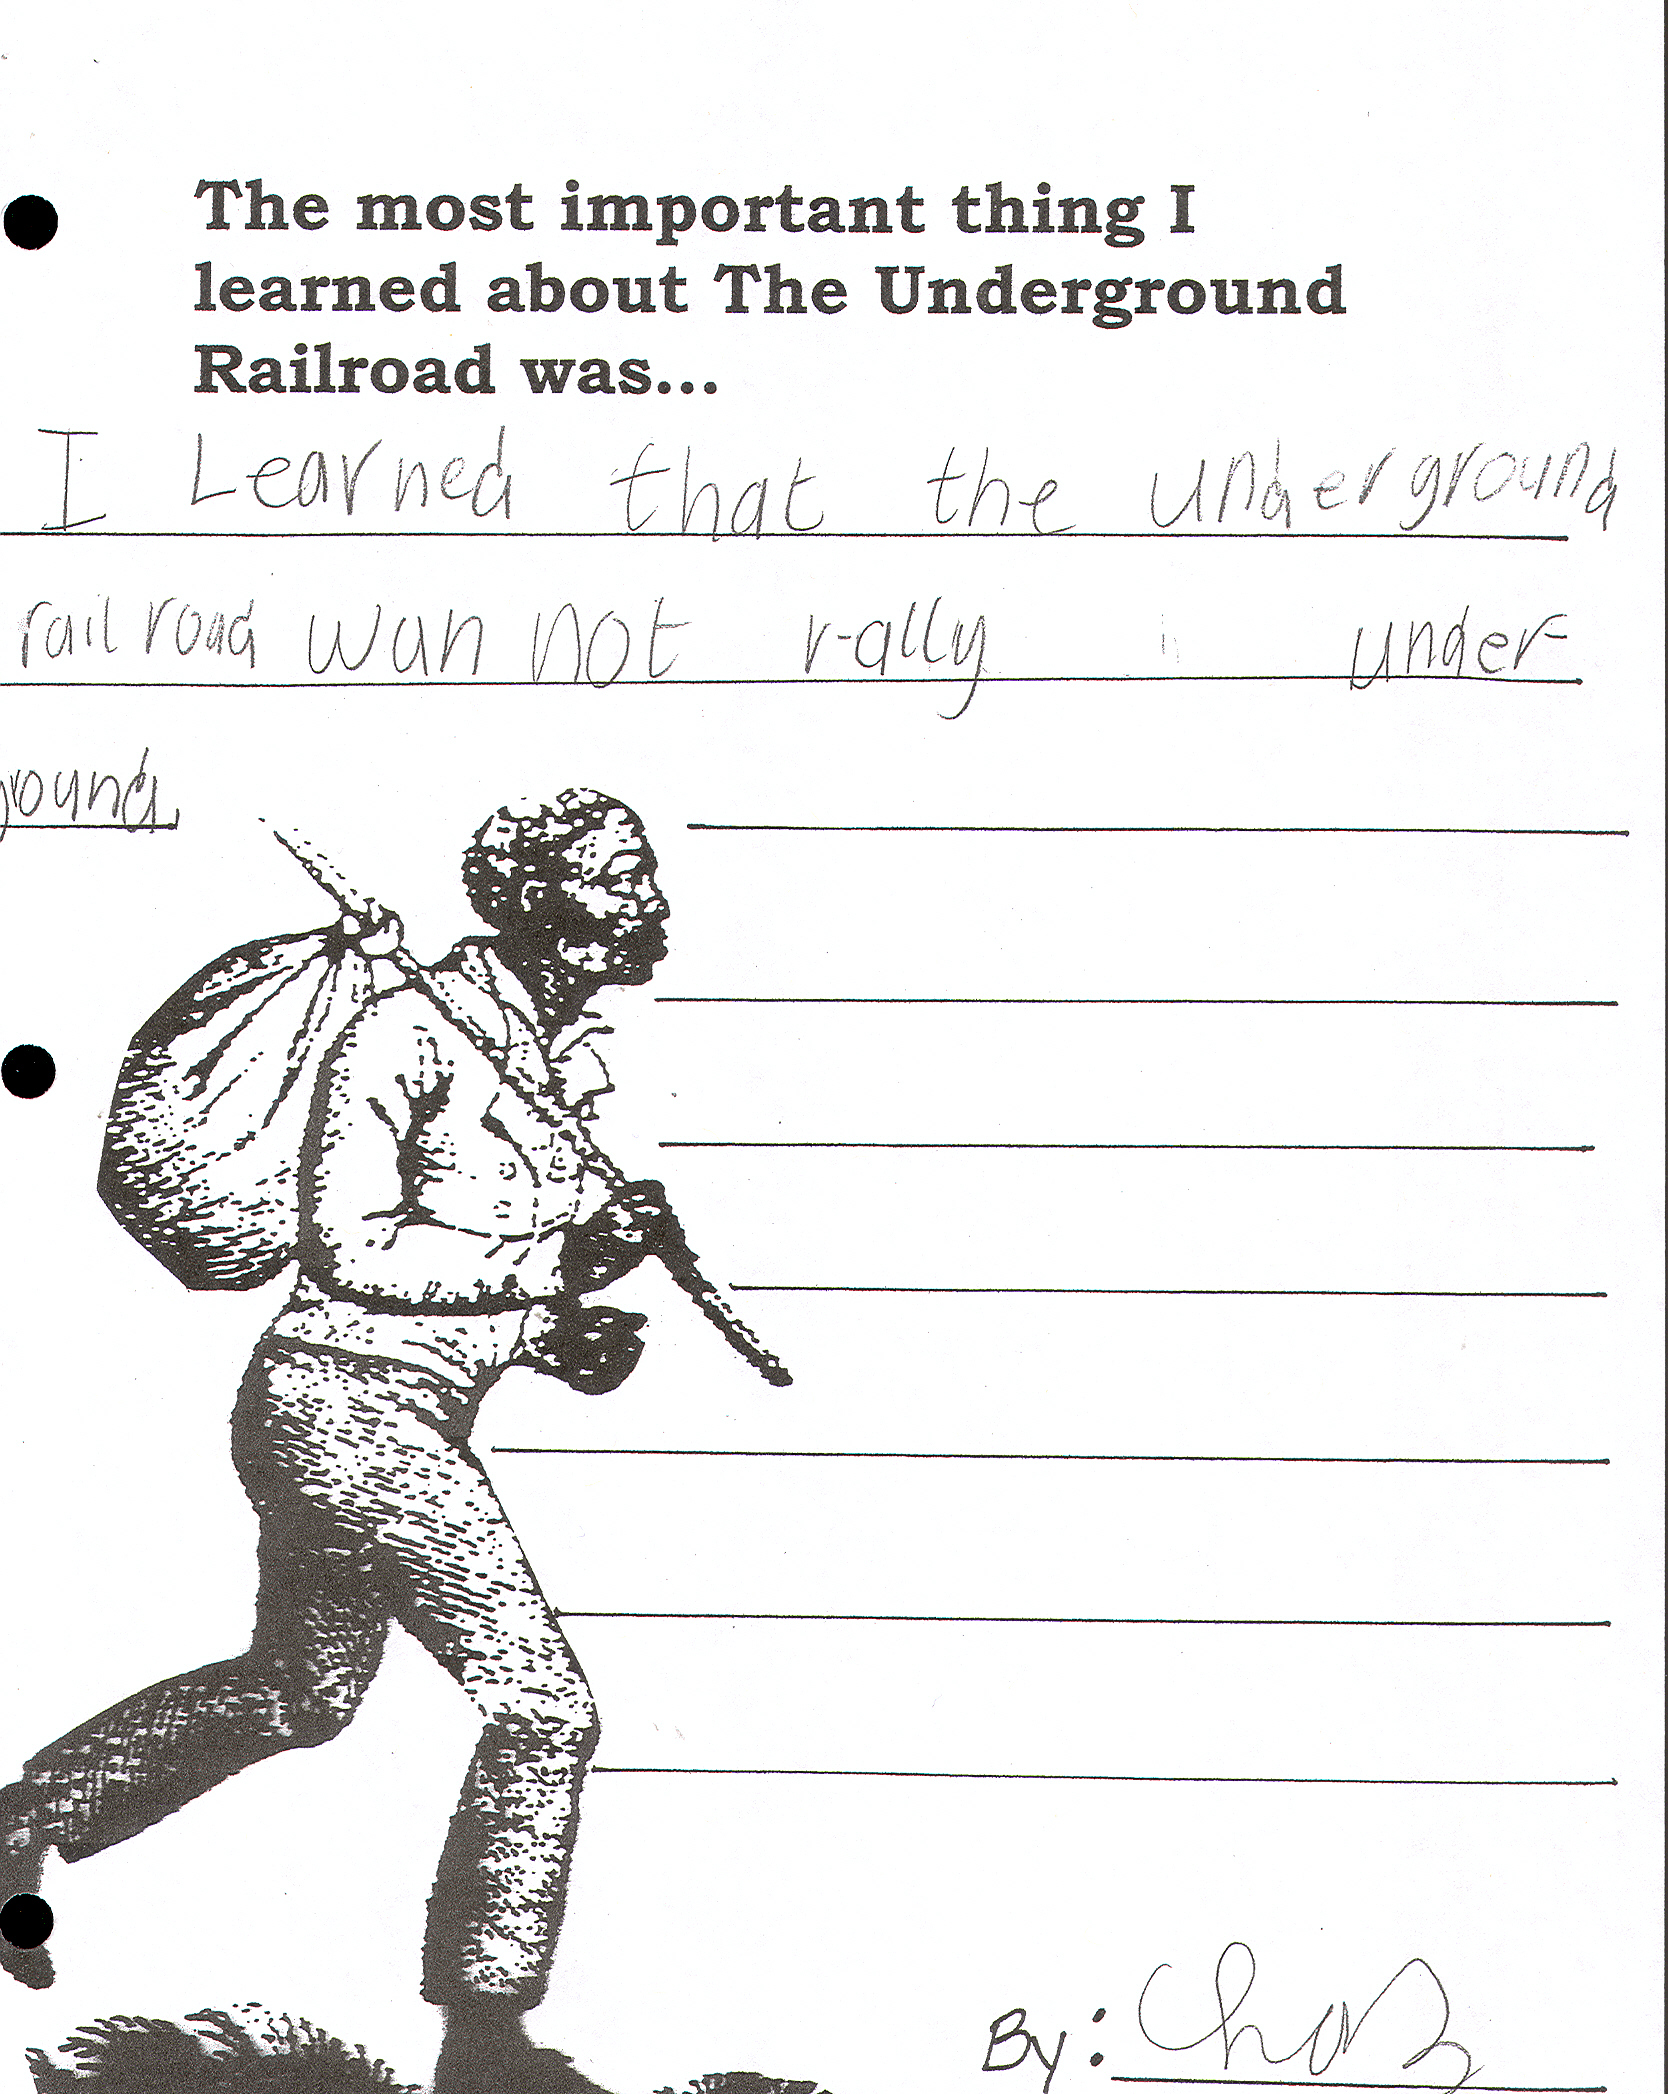 The most important thing I
learned about The Underground
Railroad was...
I Learned that the underground
railroad wan not r-ally under
ground
By: Chaz